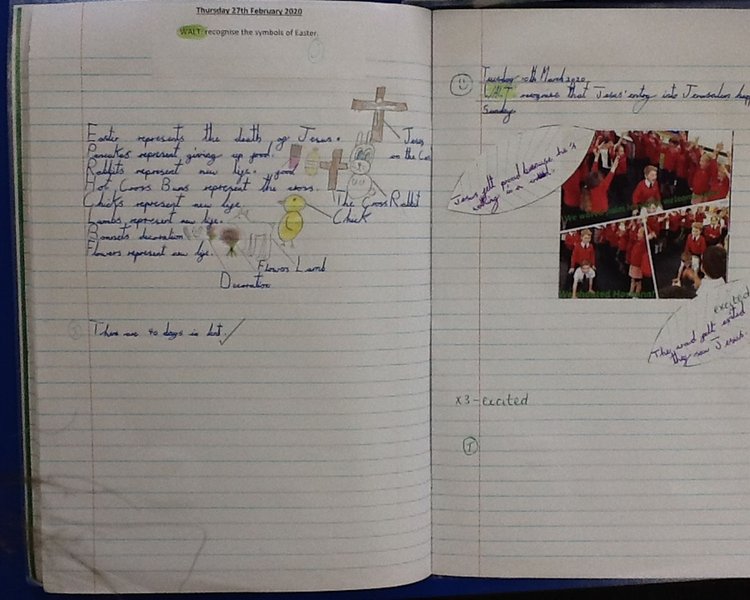 Thursday 27th February 2020
WALT recognise the symbols of Easter.
Easter represents the death of Jesus.
Pancakes represent giving up food.
Rabbits represent new life.
food
Hot Cross Buns represent the cross.
Chicks represent new life.
Lambs represent new life.
Bonnets decoration
Flowers represent new life.
Jesus
on the
The Cross
Rabbit
Chick
Flowers
Lamb
Decoration
There are 40 days in lent.
Tuesday 10th March 2020
WALT recognise that Jesus' entry into Jerusalem
Sunday.
Jesus felt proud because he's
We
excited
They felt
they saw Jesus.
x3 - excited
I